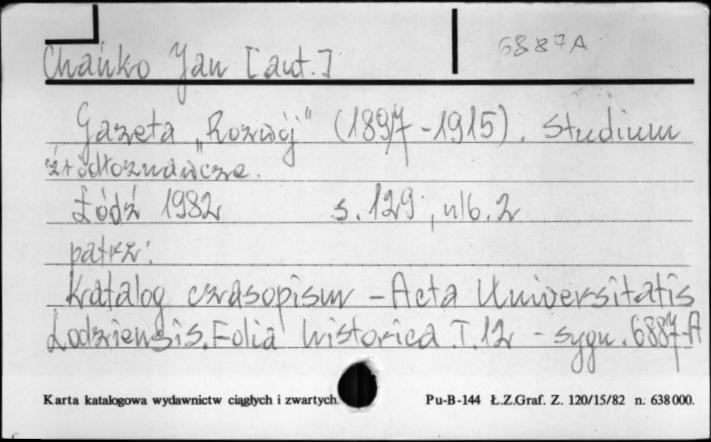 Chańko Jan [aut.]
6887A
Gazeta „Rozwój" (1897-1915). Studium
źródłoznawcze.
Łódź 1982 s. 129, nlb. 2
patrz:
Katalog czasopism - Acta Universitatis
Lodziensis. Folia historica T. 12 - sygn. 6887-A
Karta katalogowa wydawnictw ciągłych i zwartych. Pu-B-144 Ł.Z.Graf. Z. 120/15/82 n. 638000.